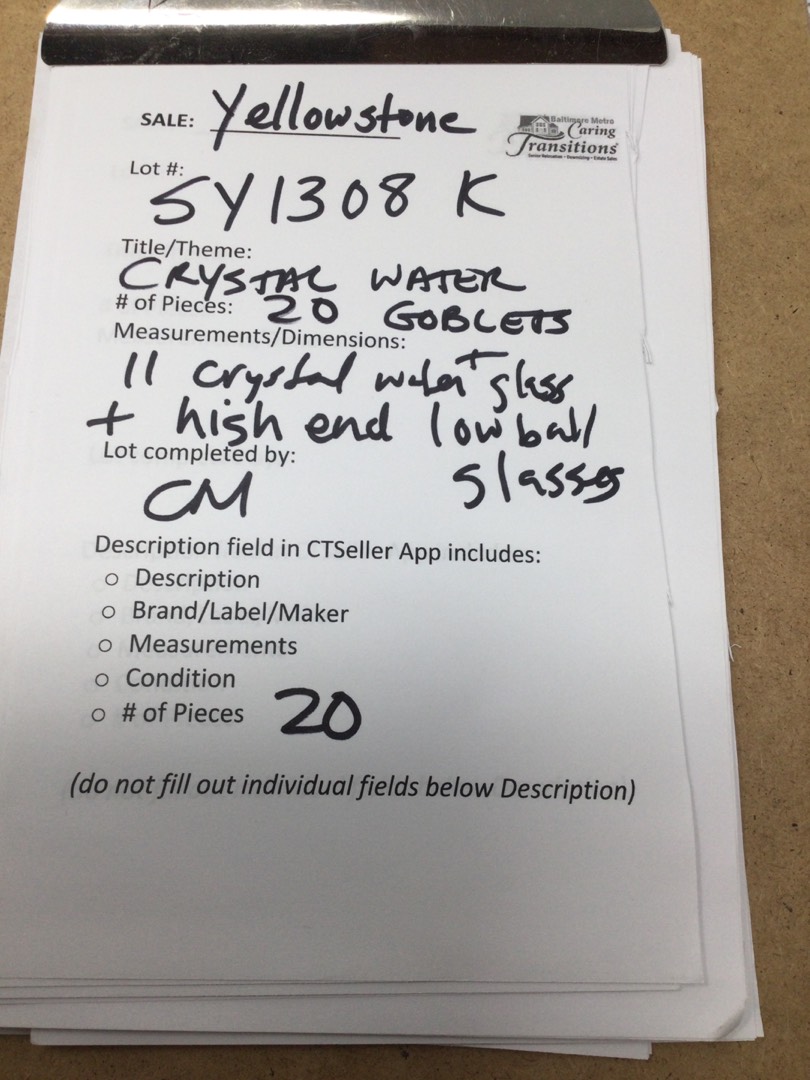 SALE: Yellowstone
Baltimore Metro
Caring
Transitions
Lot #:
SY1308 K
Title/Theme:
CRYSTAL WATER
# of Pieces: 20 GOBLETS
Measurements/Dimensions:
11 crystal water + glass
+ high end low ball
Lot completed by:
glasses
CM
Description field in CTSeller App includes:
○ Description
○ Brand/Label/Maker
○ Measurements
○ Condition
○ # of Pieces 20
(do not fill out individual fields below Description)